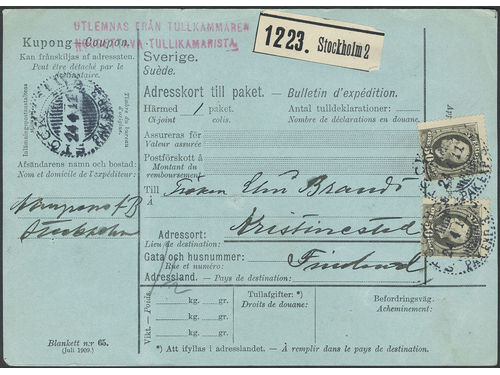 UTLEMNAS FRÅN TULLKAMMAREN
TULLIKAMARISTA
1223. Stockholm 2
Kupong - Coupon.
Kan frånskiljas af adressaten.
Peut être détaché par le
destinataire.
Sverige.
Suède.
Adresskort till paket. — Bulletin d'expédition.
Härmed 1 paket.
Ci-joint colis.
Antal tulldeklarationer:
Nombre de déclarations en douane:
Assureras för
Valeur assurée
Postförskott å
Montant du
remboursement
Timbre du bureau
d'origine.
24.4.11
Afsändarens namn och bostad:
Nom et domicile de l'expéditeur:
Stockholm
Till Fröken Elin Brando
Kristinestad
Adressort:
Lieu de destination:
Gata och husnummer:
Rue et numéro:
Finland
Adressland. - Pays de destination:
Vikt. - Poids.
kg. gr.
kg. gr.
kg. gr.
Tullafgifter: *)
Droits de douane:
Befordringsväg.
Acheminement:
Blankett n:r 65.
(Juli 1909.)
*) Att ifyllas i adresslandet. — À remplir dans le pays de destination.